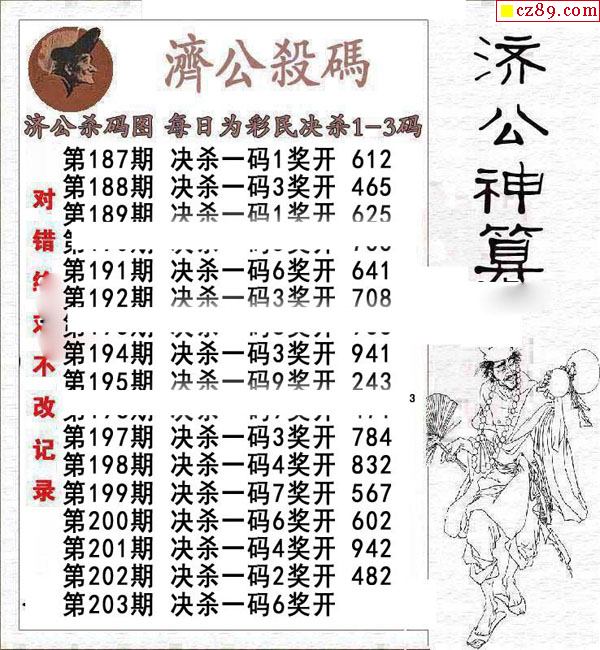 cz89.com
濟公殺碼
济公杀码图 每日为彩民决杀1-3码
第187期 决杀一码1奖开 612
第188期 决杀一码3奖开 465
第189期 决杀一码1奖开 625
第191期 决杀一码6奖开 641
第192期 决杀一码3奖开 708
第194期 决杀一码3奖开 941
第195期 决杀一码9奖开 243
第197期 决杀一码3奖开 784
第198期 决杀一码4奖开 832
第199期 决杀一码7奖开 567
第200期 决杀一码6奖开 602
第201期 决杀一码4奖开 942
第202期 决杀一码2奖开 482
第203期 决杀一码6奖开
对错
不改记录
济公神算
3